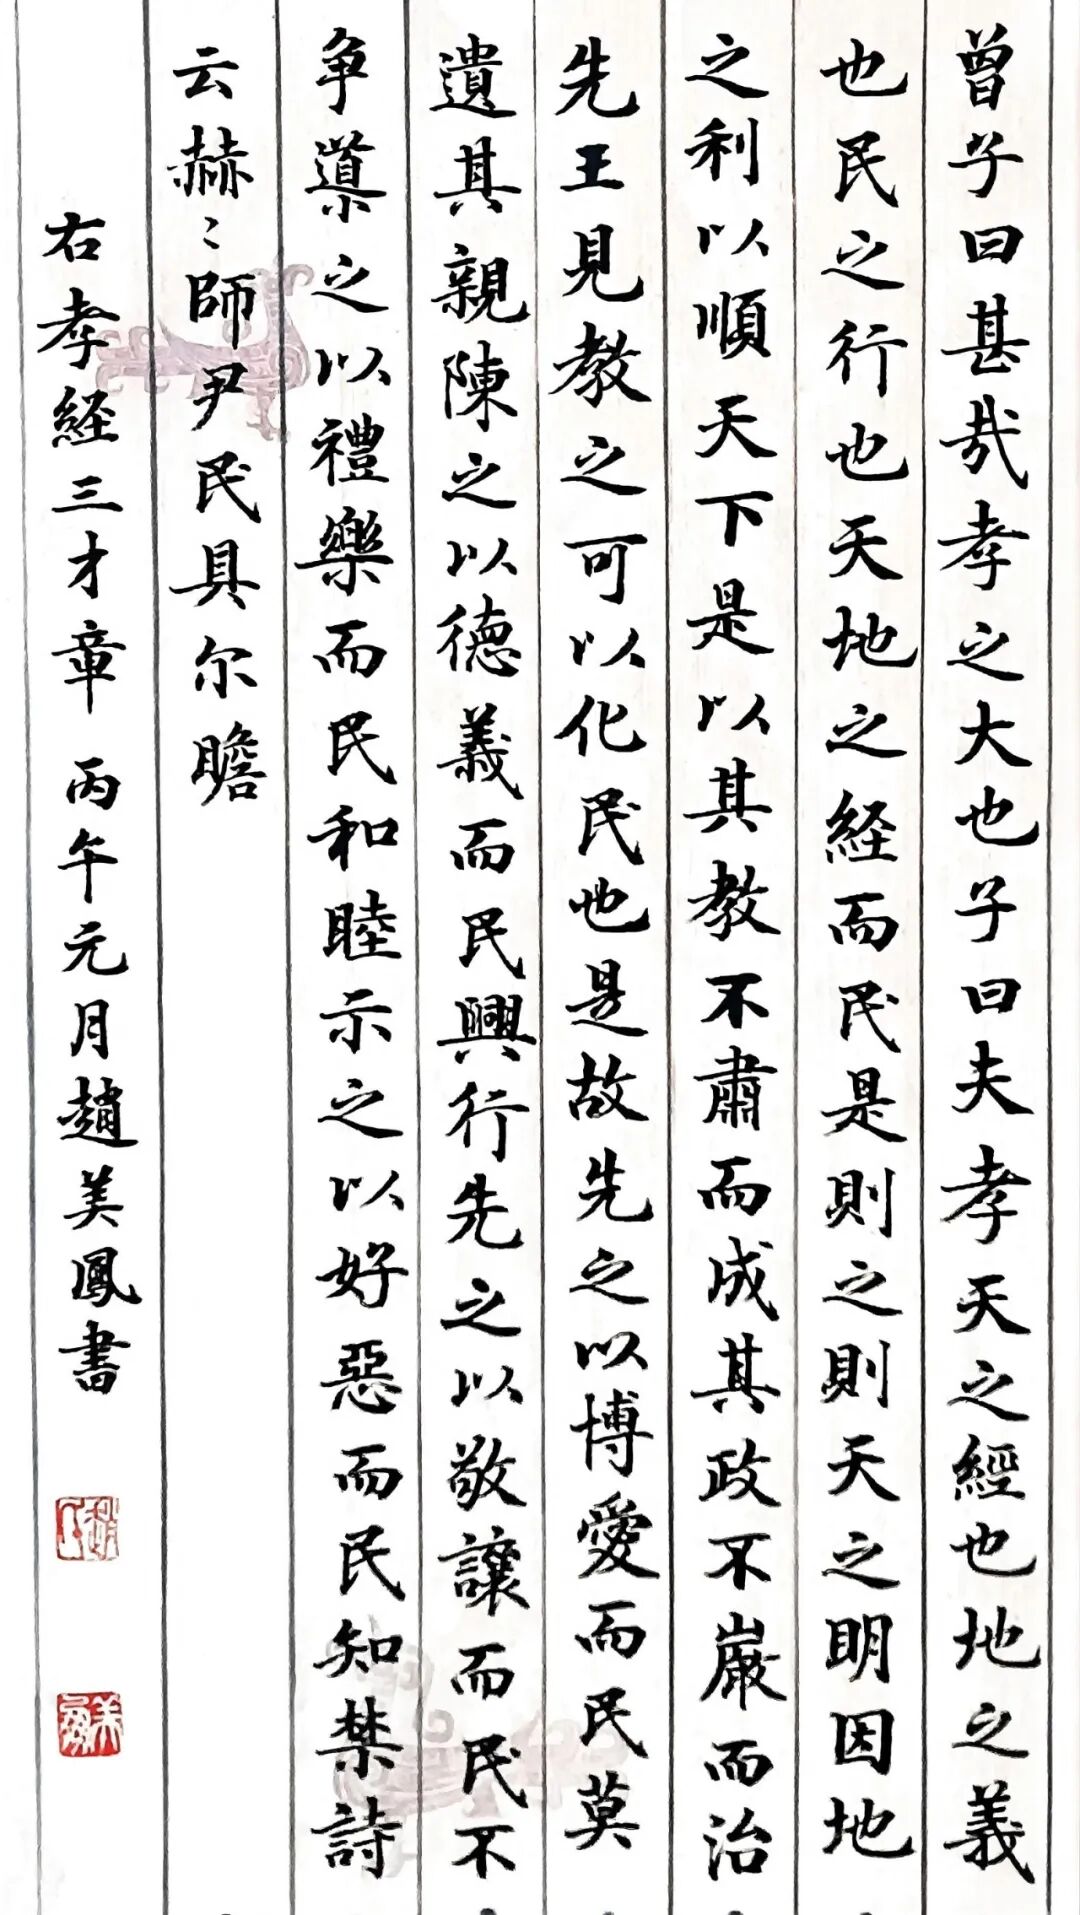 曾子曰甚哉孝之大也子曰夫孝天之經也地之義
也民之行也天地之経而民是則之則天之明因地
之利以順天下是以其教不肅而成其政不嚴而治
先王見教之可以化民也是故先之以博愛而民莫
遺其親陳之以德義而民興行先之以敬讓而民不
争導之以禮樂而民和睦示之以好惡而民知禁詩
云赫〻師尹民具尔瞻
右孝経三才章 丙午元月趙美鳳書